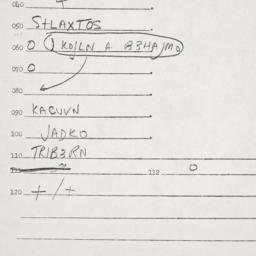 040 +
050 S+LAXTOS
060 O KOJLN A B3HA/MO
070 O
080
090 KACUVN
100 JADKO
110 TRIB3RN
112 O
120 +/+